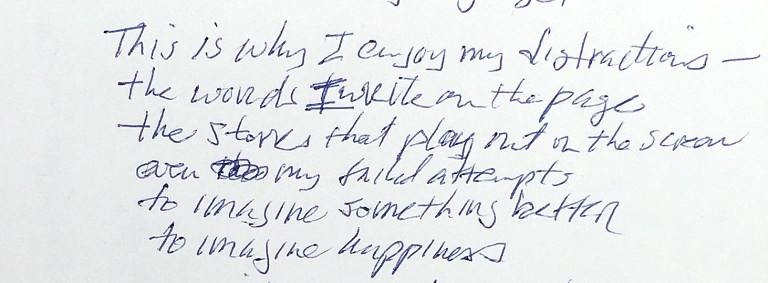 This is why I enjoy my distractions —
the words I write on the page
the stories that play out on the screen
even my failed attempts
to imagine something better
to imagine happiness